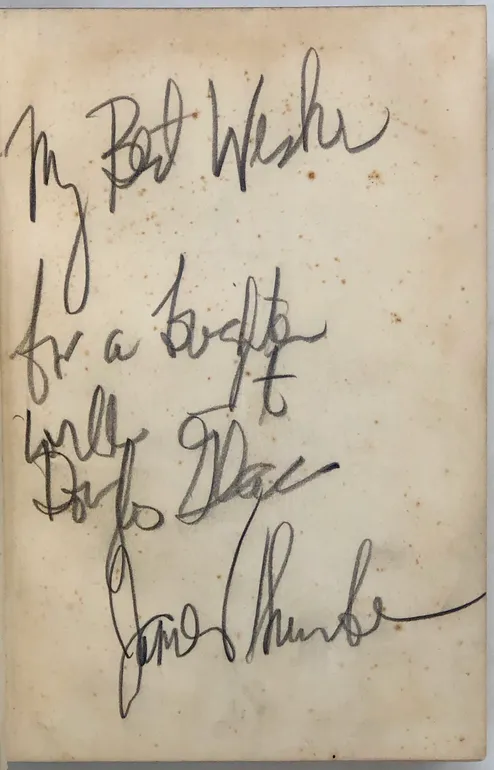 My Best Wishes
for a brighter
world
to
Douglas
James Thurber